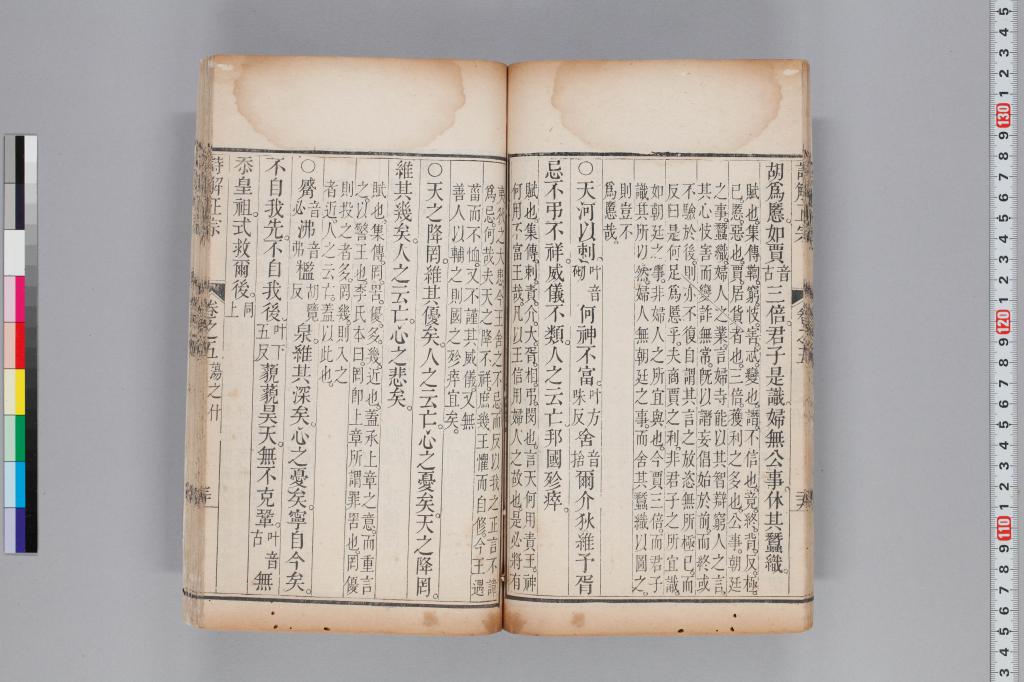 胡爲慝。如賈音古三倍。君子是識。婦無公事。休其蠶織。
賦也。集傳。鞫。窮。忮。害。忒。變也。譖。不信也。竟。終。背。反。極。
已。慝。惡也。賈。居貨者也。三倍。獲利之多也。公事。朝廷
之事。蠶織。婦人之業。言婦寺能以其智辯窮人之言。
其心忮害而變詐無常。既以譖妄倡始於前。而終或
不驗於後。則亦不復自謂其言之放恣無所極已。而
反曰是何足爲慝乎。夫商賈之利。非君子之所宜識。
如朝廷之事。非婦人之所宜與也。今賈三倍。而君子
識其所以然。婦人無朝廷之事。而舍其蠶織以圖之。
則豈不
爲慝哉。
○天何以刺。叶音砌何神不富。叶方味反舍音捨爾介狄。維予胥
忌。不弔不祥。威儀不類。人之云亡。邦國殄瘁。
賦也。集傳。刺。責。介。大。胥。相。弔。閔也。言天何用責王。神
何用不富王哉。凡以王信用婦人之故也。是必將有
夷狄之大患。今王舍之不忌。而反以我之正言不諱
爲忌。何哉。夫天之降不祥。庶幾王懼而自修。今王遇
菑而不恤。又不謹其威儀。又無
善人以輔之。則國之殄瘁宜矣。
○天之降罔。維其優矣。人之云亡。心之憂矣。天之降罔。
維其幾矣。人之云亡。心之悲矣。
賦也。集傳。罔。罟。優。多。幾。近也。蓋承上章之意。而重言
之。以警王也。李氏本曰。罔卽上章所謂罪罟也。罔優
則投之者多。罔幾則入之
者近。人之云亡。蓋以此也。
○觱音必沸音弗檻胡覽反泉。維其深矣。心之憂矣。寧自今矣。
不自我先。不自我後。叶下五反藐藐昊天。無不克鞏。叶音古無
忝皇祖。式救爾後。同上
詩解正宗
卷之五
蕩之什